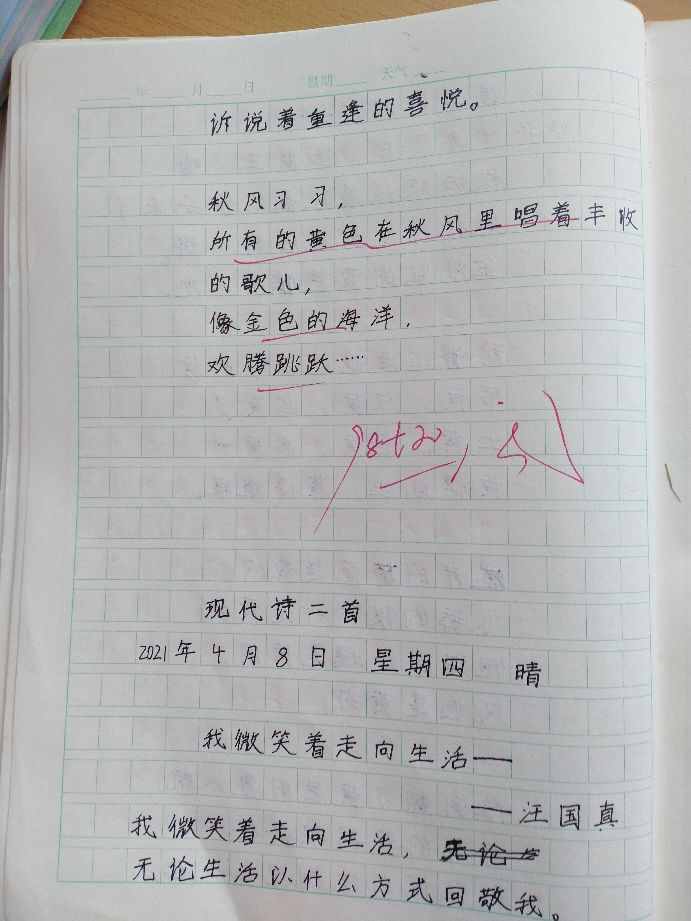 年 月 日 星期 天气
诉说着重逢的喜悦。
秋风习习，
所有的黄色在秋风里唱着丰收
的歌儿，
像金色的海洋，
欢腾跳跃……
98+20
现代诗二首
2021年4月8日 星期四 晴
我微笑着走向生活——
——汪国真
我微笑着走向生活，无论
无论生活以什么方式回敬我。